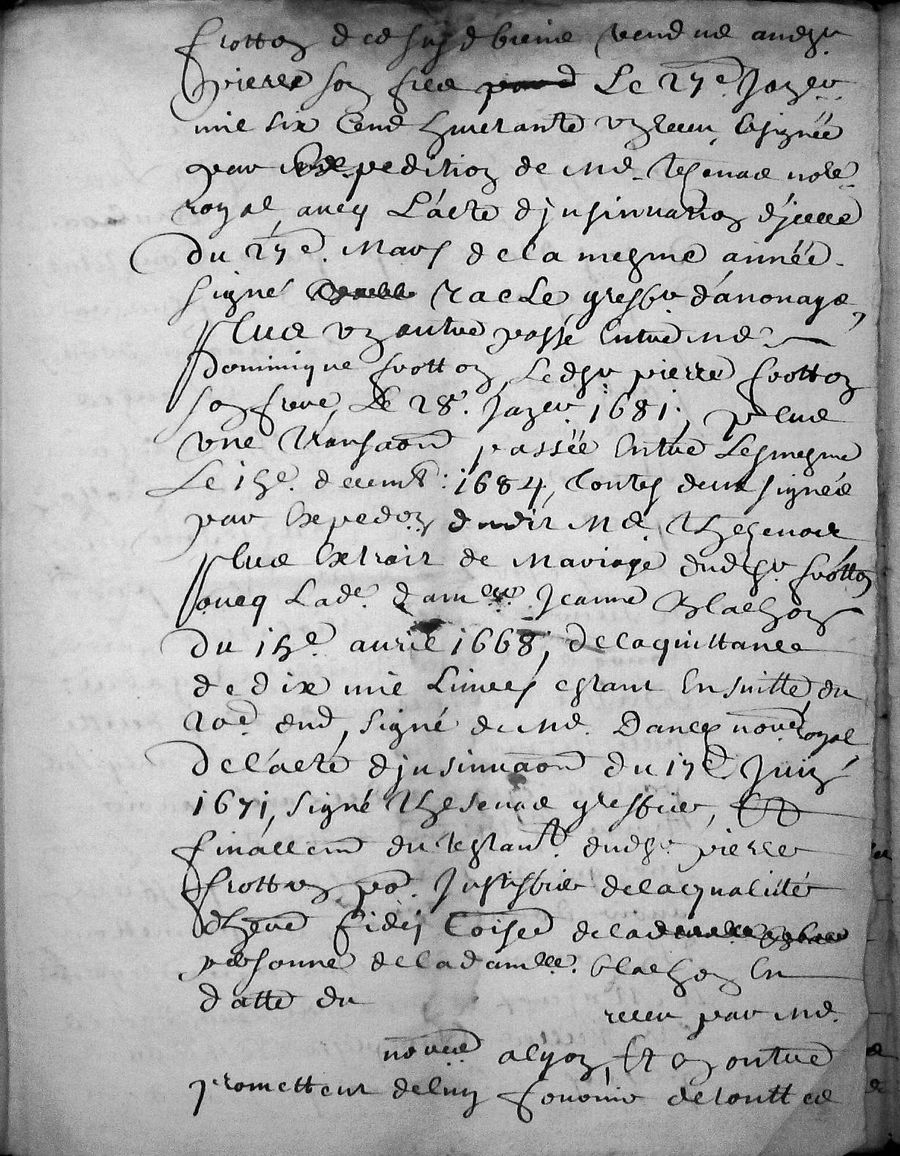 frotton de ses biens vendus audsr
pierre son frere Le 27e. Janver
mil six Cend huictante vn receu, signée
par expedition de Me. Thesenas nore.
royal, avec L'acte d'jnsinuation d'jcelle
du 27e. Mars de la mesme année.
signés racle gresfier d'anonay,
plus vn autre passé Entre Me
Dominique frotton, Ledsr pierre frotton
son frere, Le 28e. Janver 1681, plus
vne transaon passée Entre Lesmesme
Le 15e. decemb: 1684, toutes deux signées
par Expedon dudit Me Thesenas
plus Extrait de Mariage dudsr frotton
avec Lade. damlle. Jeanne Blachon
du 15e. avril 1668, de la quittance
de dix mil Liures estant Ensuitte du
20e dud, signé de Me. nore royal
de l'acte d'jnsinuaon du 17e Juin
1671, signé Thesenas gresfier, Et
finallemt du testamt. dudsr pierre
frotton pr. justifier de la qualitté
d'here fidei Coise de la
personne de la damlle. blachon En
datte du receu par Me.
nore a lyon, Et En outre
promettent de luy fournir de touttes